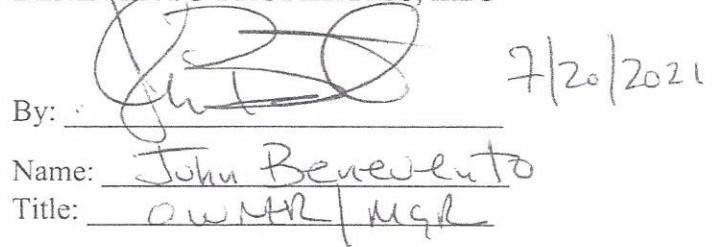 7/20/2021
By:
Name: John Benevento
Title: OWNER/MGR